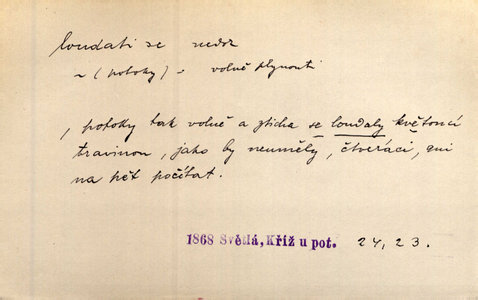 loudati se nedok
~ (potoky) = volně plynouti
, potoky tak volně a zticha se loudaly květoucí
travinou, jako by neuměly, čtveráci, ani
na pět počítat.
1868 Světlá, Kříž u pot. 24, 23.